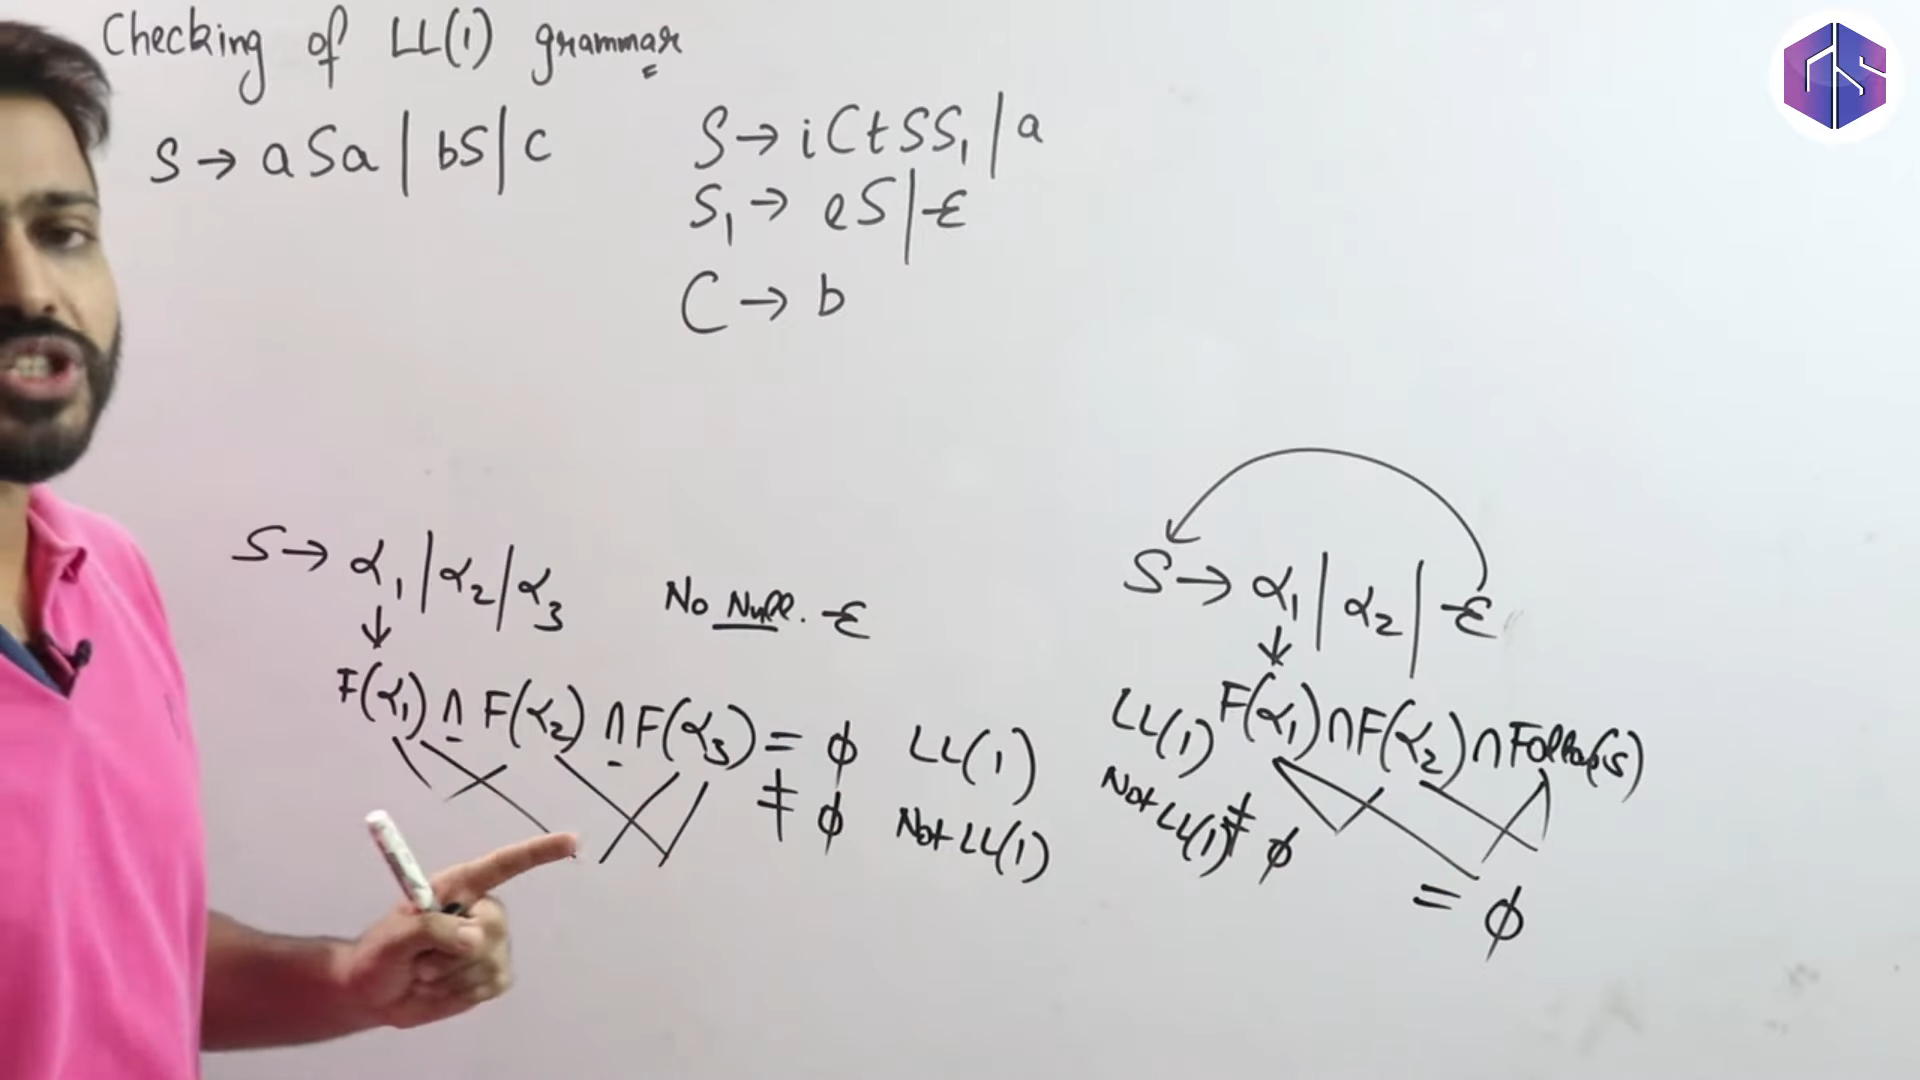 Checking of LL(1) grammar
S → aSa | bS | c
S → iCtSS₁ | a
S₁ → eS | ε
C → b
S → α₁ | α₂ | α₃ No Null. ε
F(α₁) ∩ F(α₂) ∩ F(α₃) = ϕ LL(1)
≠ ϕ Not LL(1)
S → α₁ | α₂ | ε
LL(1) F(α₁) ∩ F(α₂) ∩ Follow(S)
Not LL(1) ≠ ϕ
= ϕ